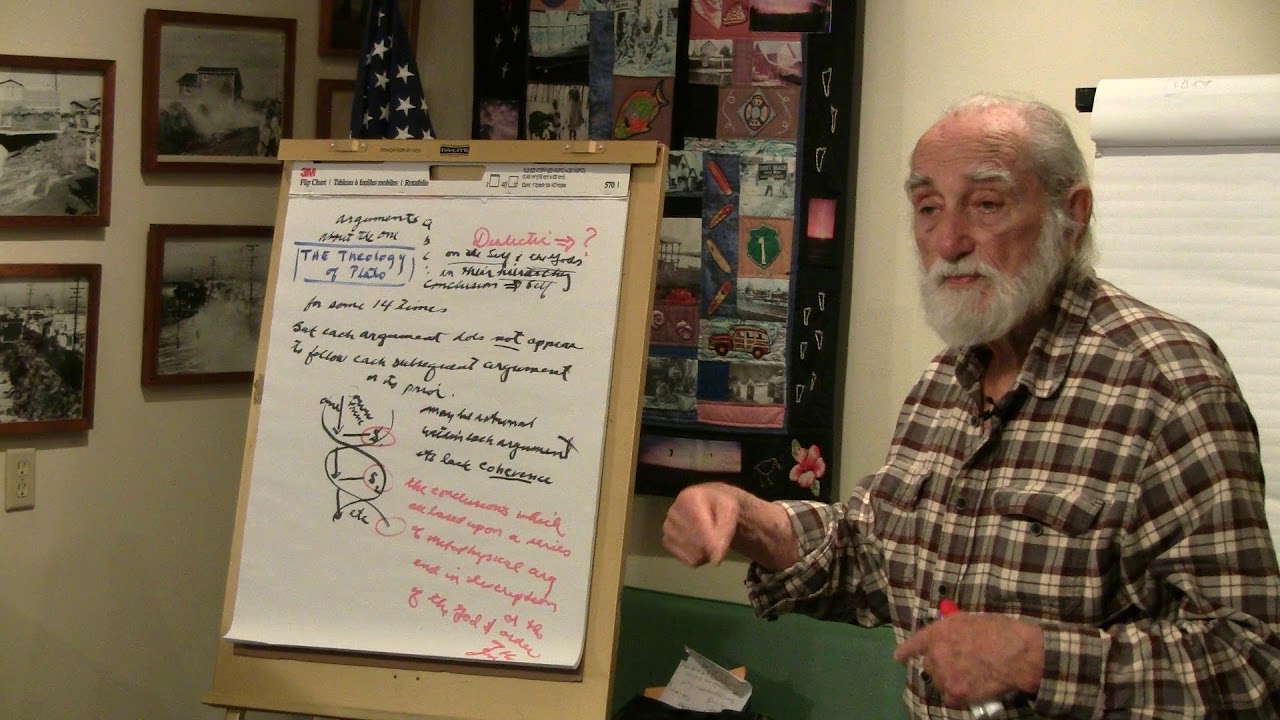 3M
Flip Chart / Tableau à feuilles mobiles / Rotafolio
570
arguments
about the one
THE THEOLOGY
of PLATO
a
b
c
Dialectic ⇒ ?
on the Self & the Gods
in their hierarchy
Conclusion ⇒ Self
for some 14 times
But each argument does not appear
to follow each subsequent argument
or its prior.
may be rational
within each argument
lack coherence
etc
the conclusions which
are based upon a series
of metaphysical arg
end in description
of the God & order
of the
1